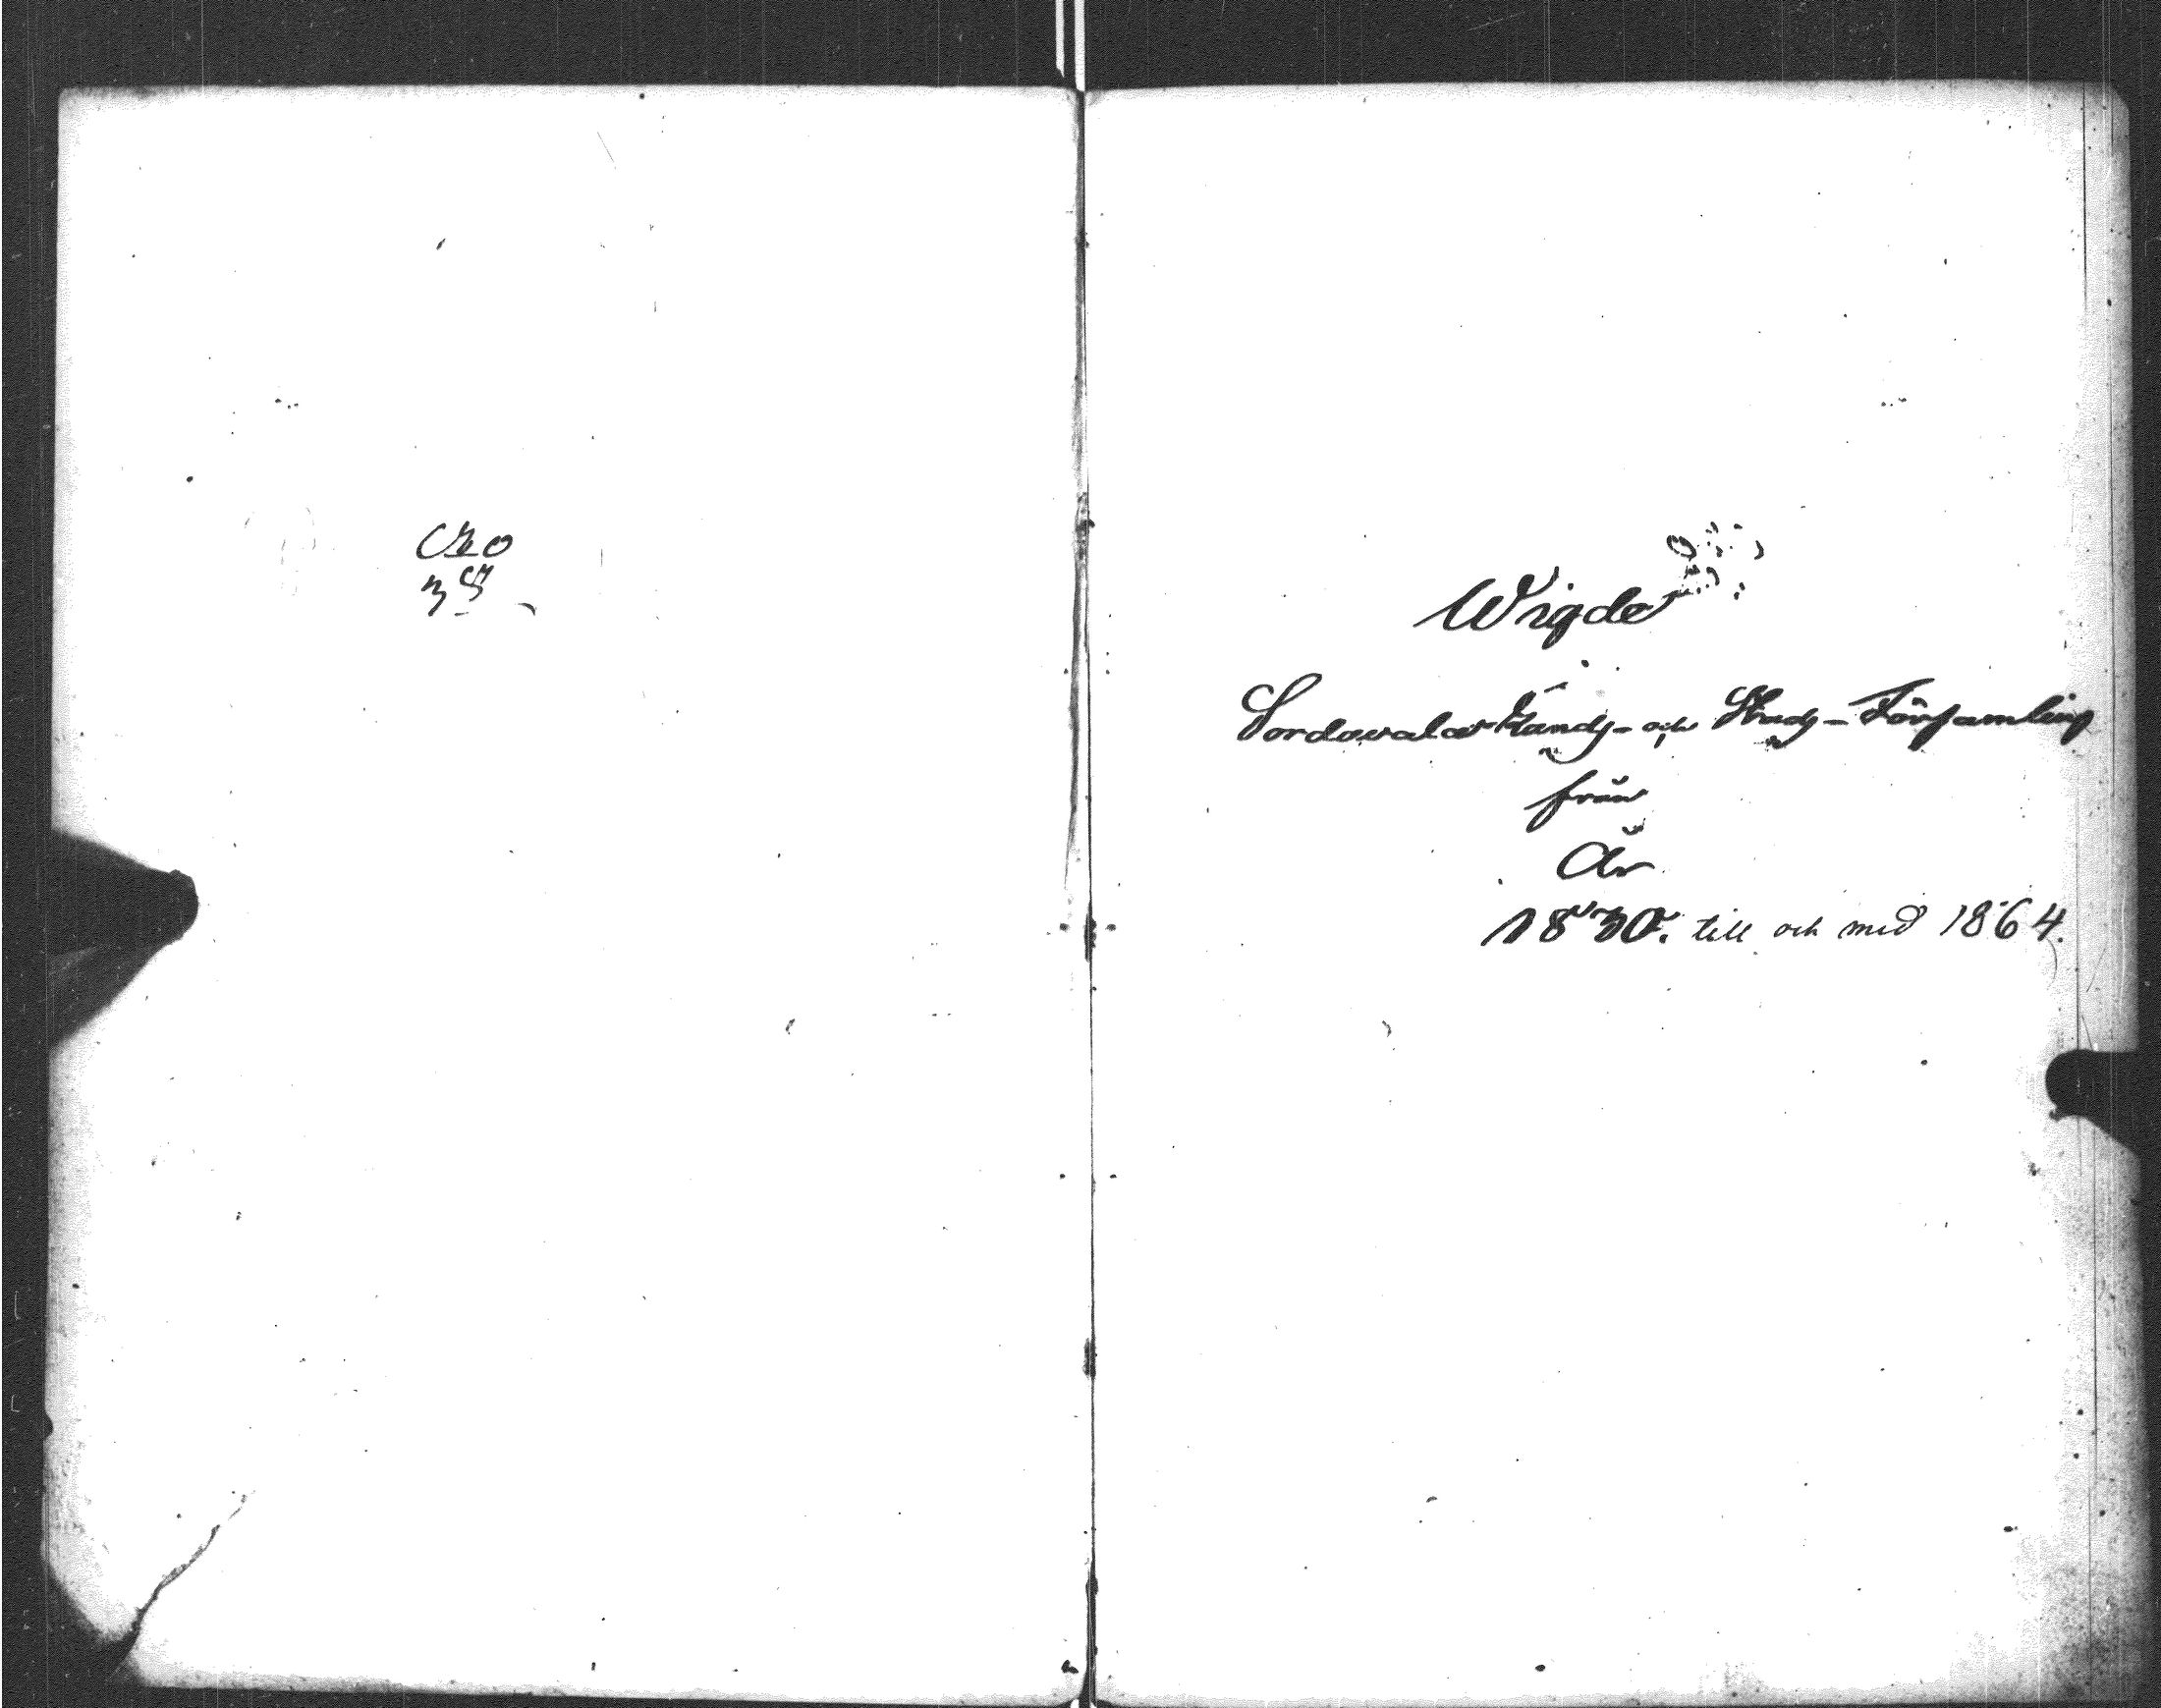 Wigde
Sordavala Lands- och Stads-Församling
från
År
1830. till och med 1864.